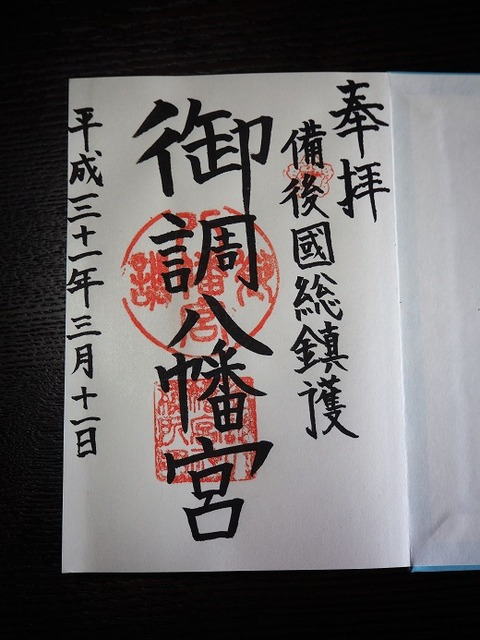 奉拝
備後國総鎮護
御調八幡宮
平成三十一年三月十一日